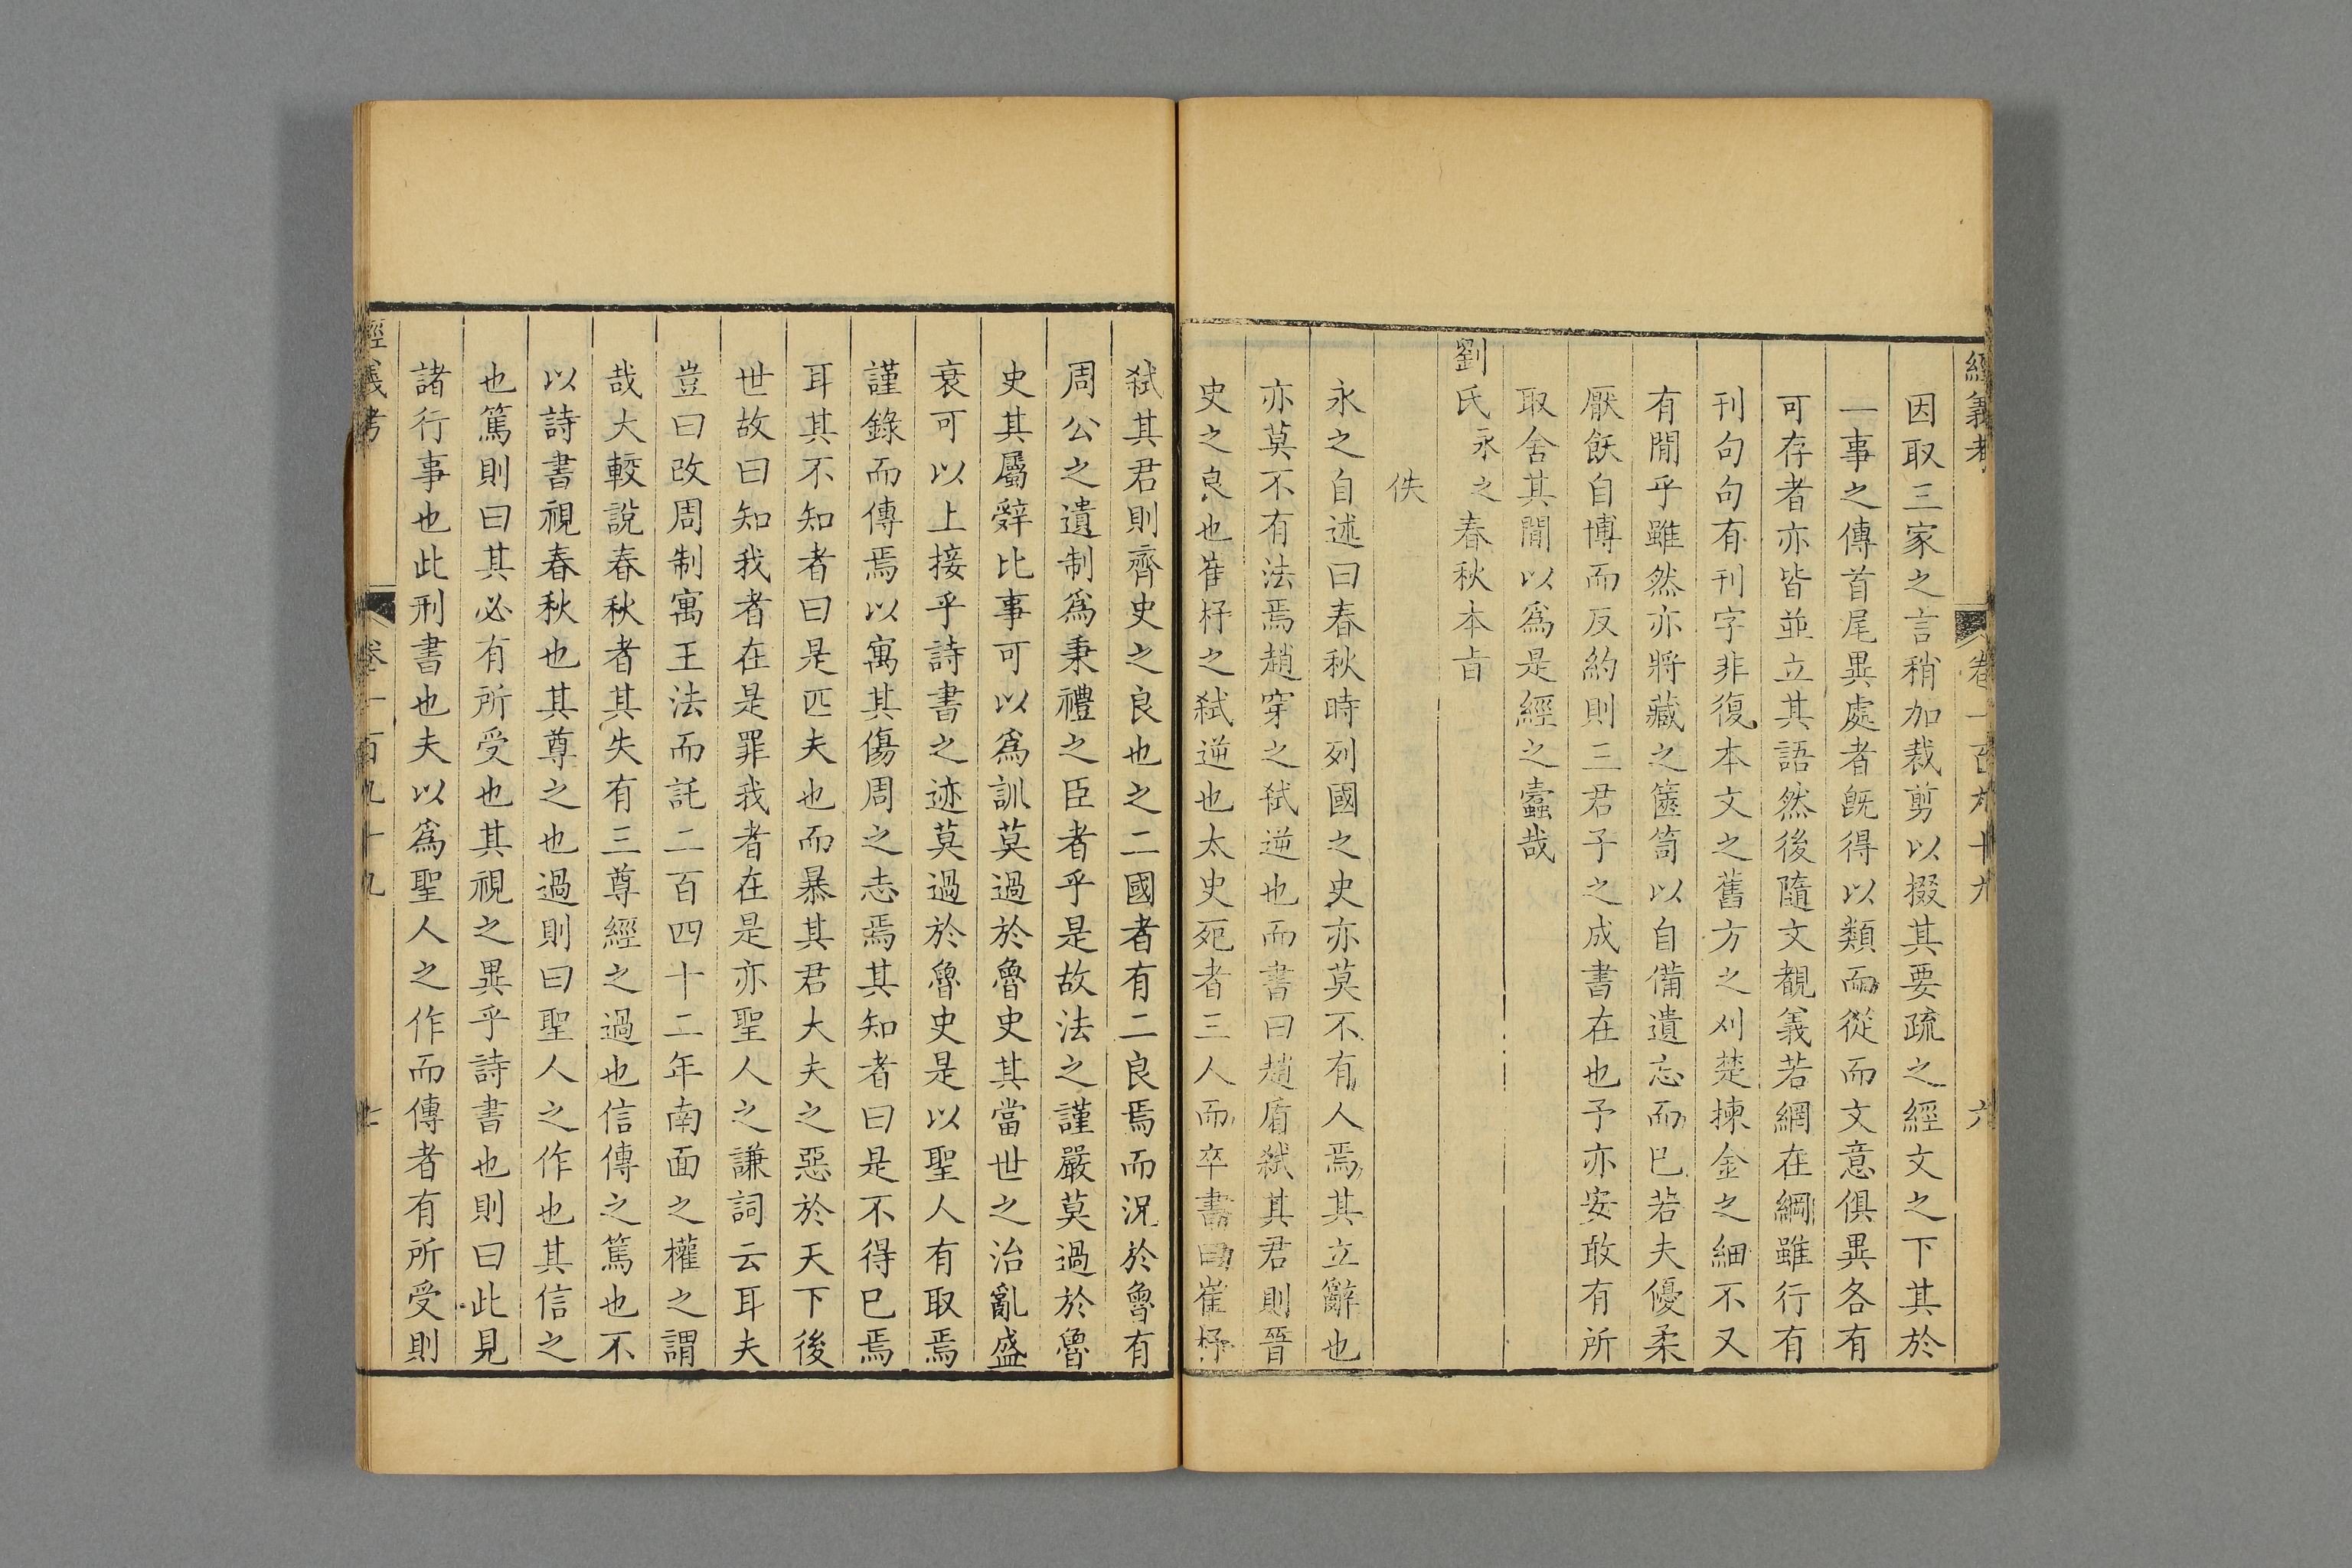 經義考 卷一百九十九 六
因取三家之言稍加裁剪以掇其要疏之經文之下其於
一事之傳首尾異處者旣得以類而從而文意俱異各有
可存者亦皆並立其語然後隨文覩義若網在綱雖行有
刊句句有刊字非復本文之舊方之刈楚揀金之細不又
有閒乎雖然亦將藏之篋笥以自備遺忘而已若夫優柔
厭飫自博而反約則三君子之成書在也予亦安敢有所
取舍其閒以爲是經之蠧哉
劉氏永之春秋本旨
佚
永之自述曰春秋時列國之史亦莫不有人焉其立辭也
亦莫不有法焉趙穿之弑逆也而書曰趙盾弑其君則晉
史之良也崔杼之弑逆也太史死者三人而卒書曰崔杼
弑其君則齊史之良也之二國者有二良焉而況於魯有
周公之遺制爲秉禮之臣者乎是故法之謹嚴莫過於魯
史其屬辭比事可以爲訓莫過於魯史其當世之治亂盛
衰可以上接乎詩書之迹莫過於魯史是以聖人有取焉
謹錄而傳焉以寓其傷周之志焉其知者曰是不得已焉
耳其不知者曰是匹夫也而暴其君大夫之惡於天下後
世故曰知我者在是罪我者在是亦聖人之謙詞云耳夫
豈曰改周制寓王法而託二百四十二年南面之權之謂
哉大較說春秋者其失有三尊經之過也信傳之篤也不
以詩書視春秋也其尊之也過則曰聖人之作也其信之
也篤則曰其必有所受也其視之異乎詩書也則曰此見
諸行事也此刑書也夫以爲聖人之作而傳者有所受則
經義考 卷一百九十九 七